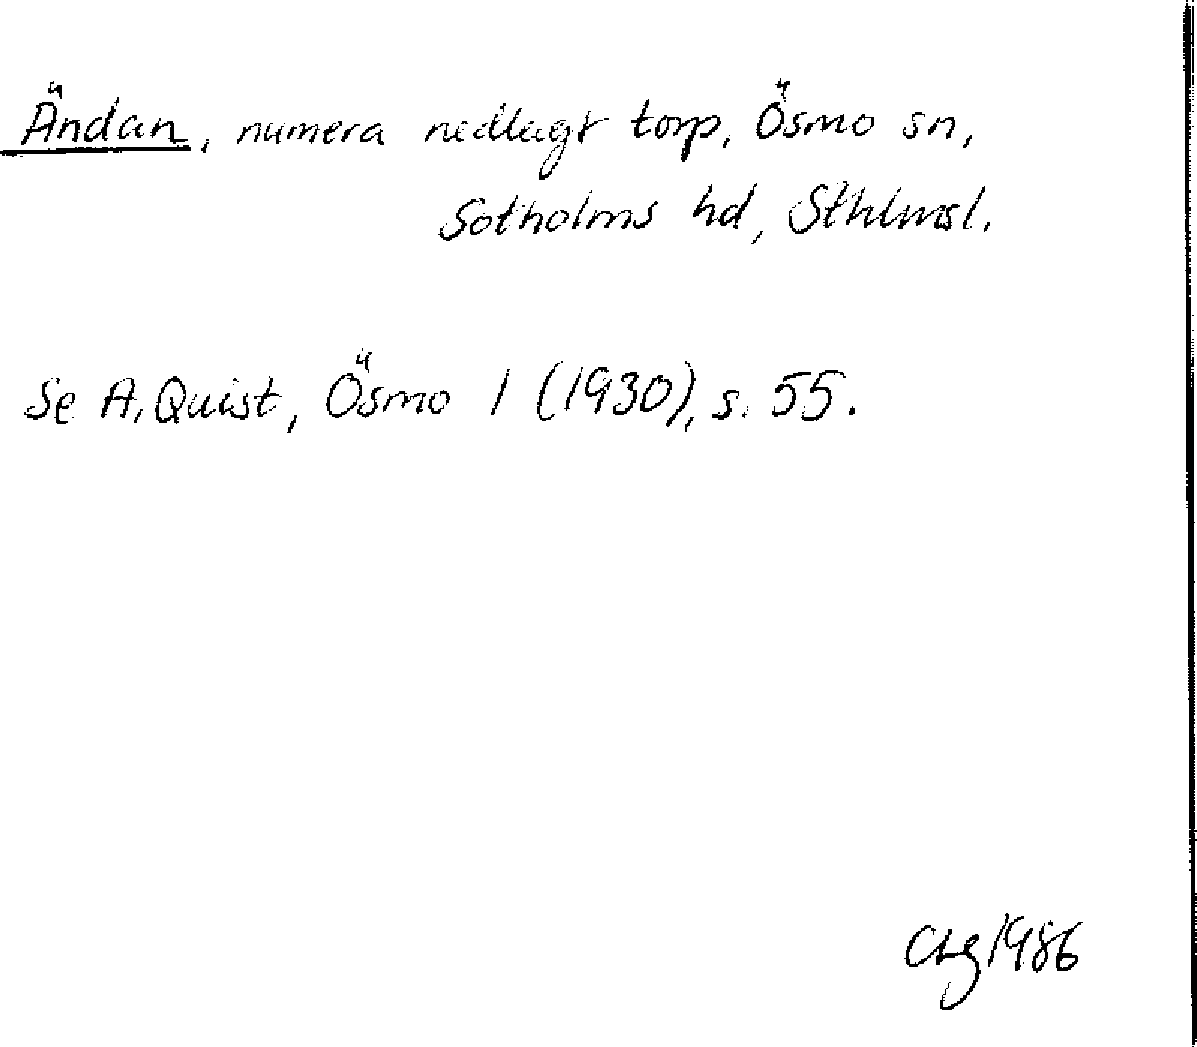 Ändan, numera nedlagt torp, Ösmo sn,
Sotholms hd, Sthlmsl.
Se A. Quist, Ösmo 1 (1930), s. 55.
1986